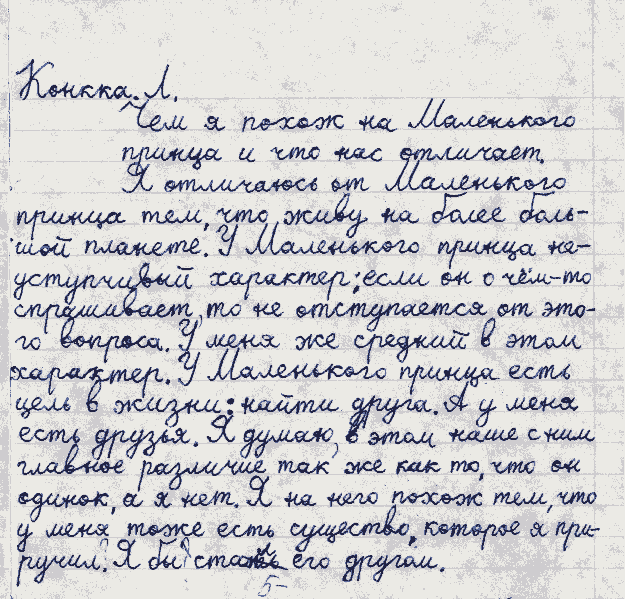 Конкка. Л.
Чем я похож на Маленького
принца и что нас отличает.
Я отличаюсь от Маленького
принца тем, что живу на более боль-
шой планете. У Маленького принца не-
уступчивый характер: если он о чём-то
спрашивает, то не отступается от это-
го вопроса. У меня же средний в этом
характер. У Маленького принца есть
цель в жизни: найти друга. А у меня
есть друзья. Я думаю, в этом наше с ним
главное различие так же как то, что он
одинок, а я нет. Я на него похож тем, что
у меня тоже есть существо, которое я при-
ручил. Я бы стал его другом.
5-